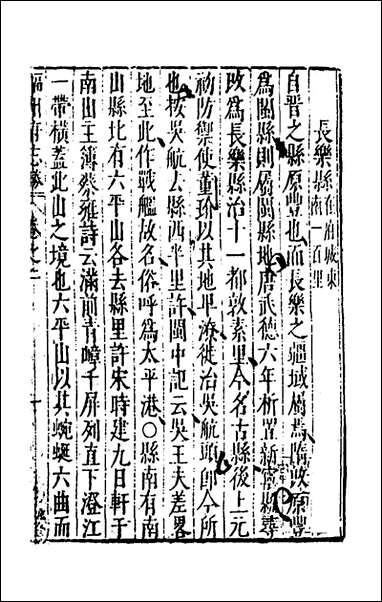 長樂縣在府城東南一百里
自晉之縣原豐也而長樂之疆域屬焉隋改原豐
爲閩縣則屬閩縣地唐武德六年析置新寧縣尋
改爲長樂縣治十一都敦素里今名古縣後上元
初防禦使董玠以其地卑濕徙治吳航頭卽今所
也按吳航去縣西半里許閩中記云吳王夫差畧
地至此作戰艦故名俗呼爲太平港○縣南有南
山縣北有六平山各去縣里許宋時建九日軒于
南山主簿蔡雍詩云滿前青嶂千屏列直下澄江
一帶橫蓋此山之境也六平山以其蜿蜒六曲而